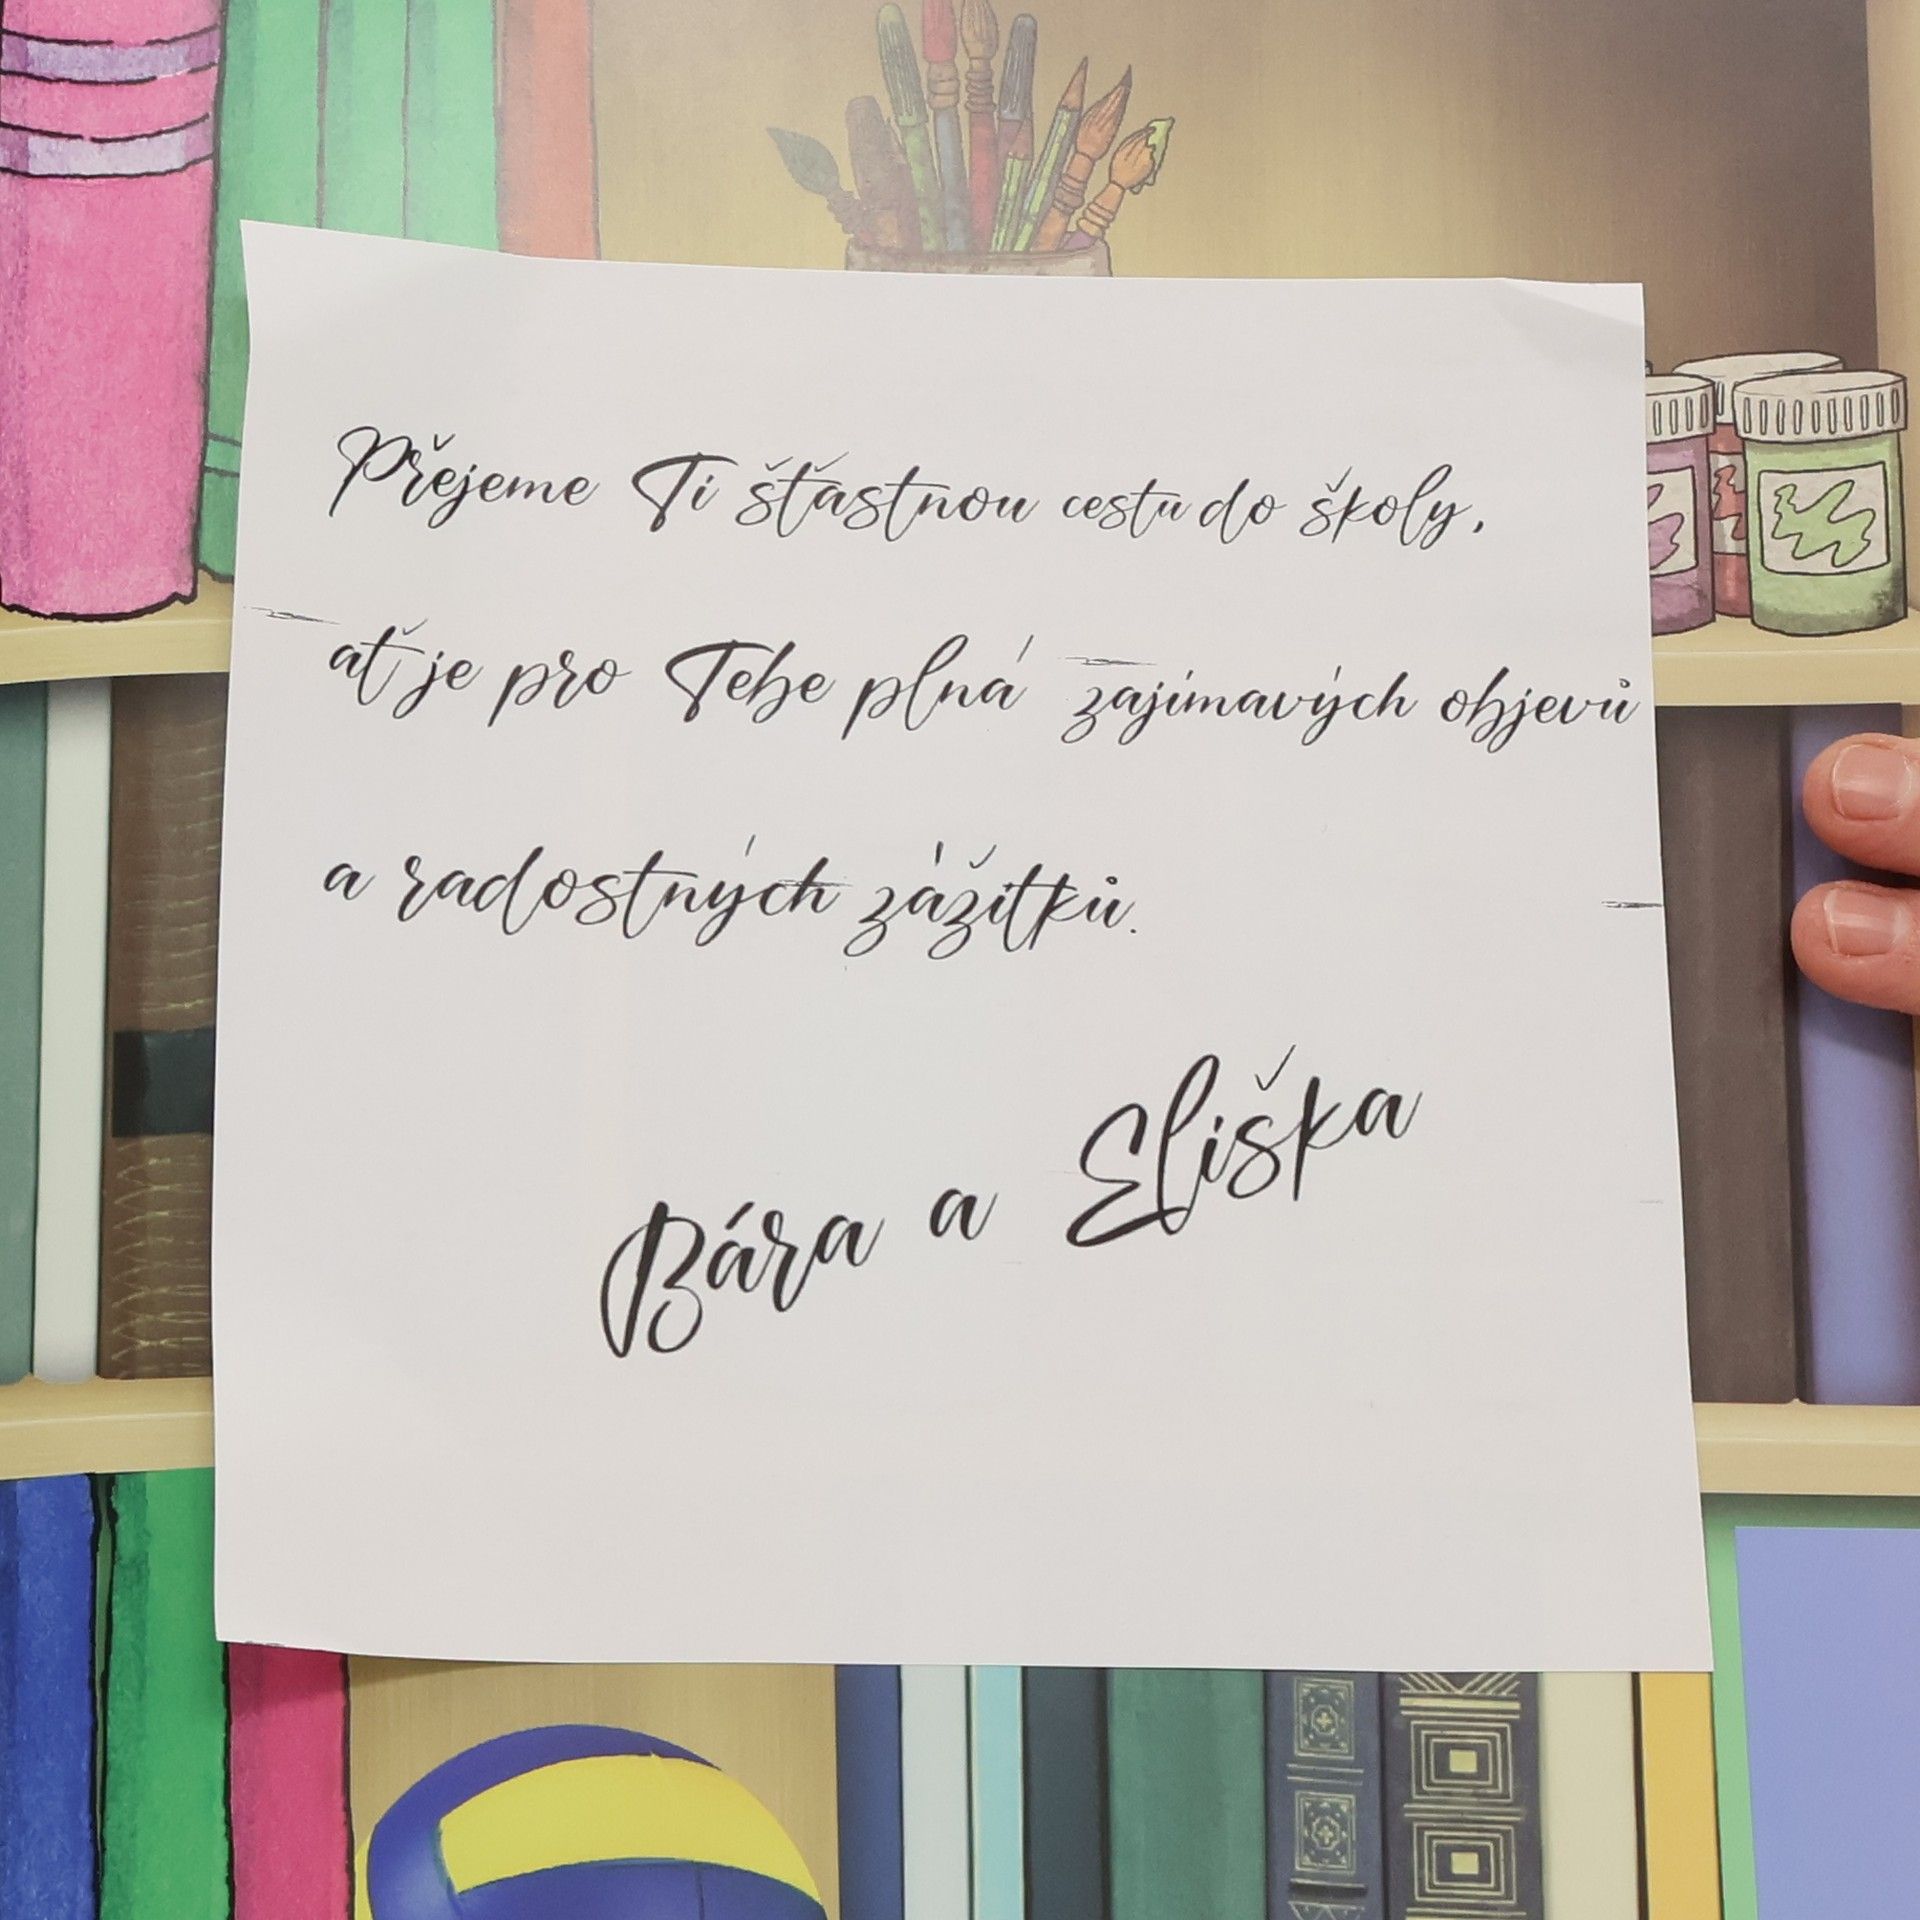 Přejeme Ti šťastnou cestu do školy,
ať je pro Tebe plná zajímavých objevů
a radostných zážitků.
Bára a Eliška